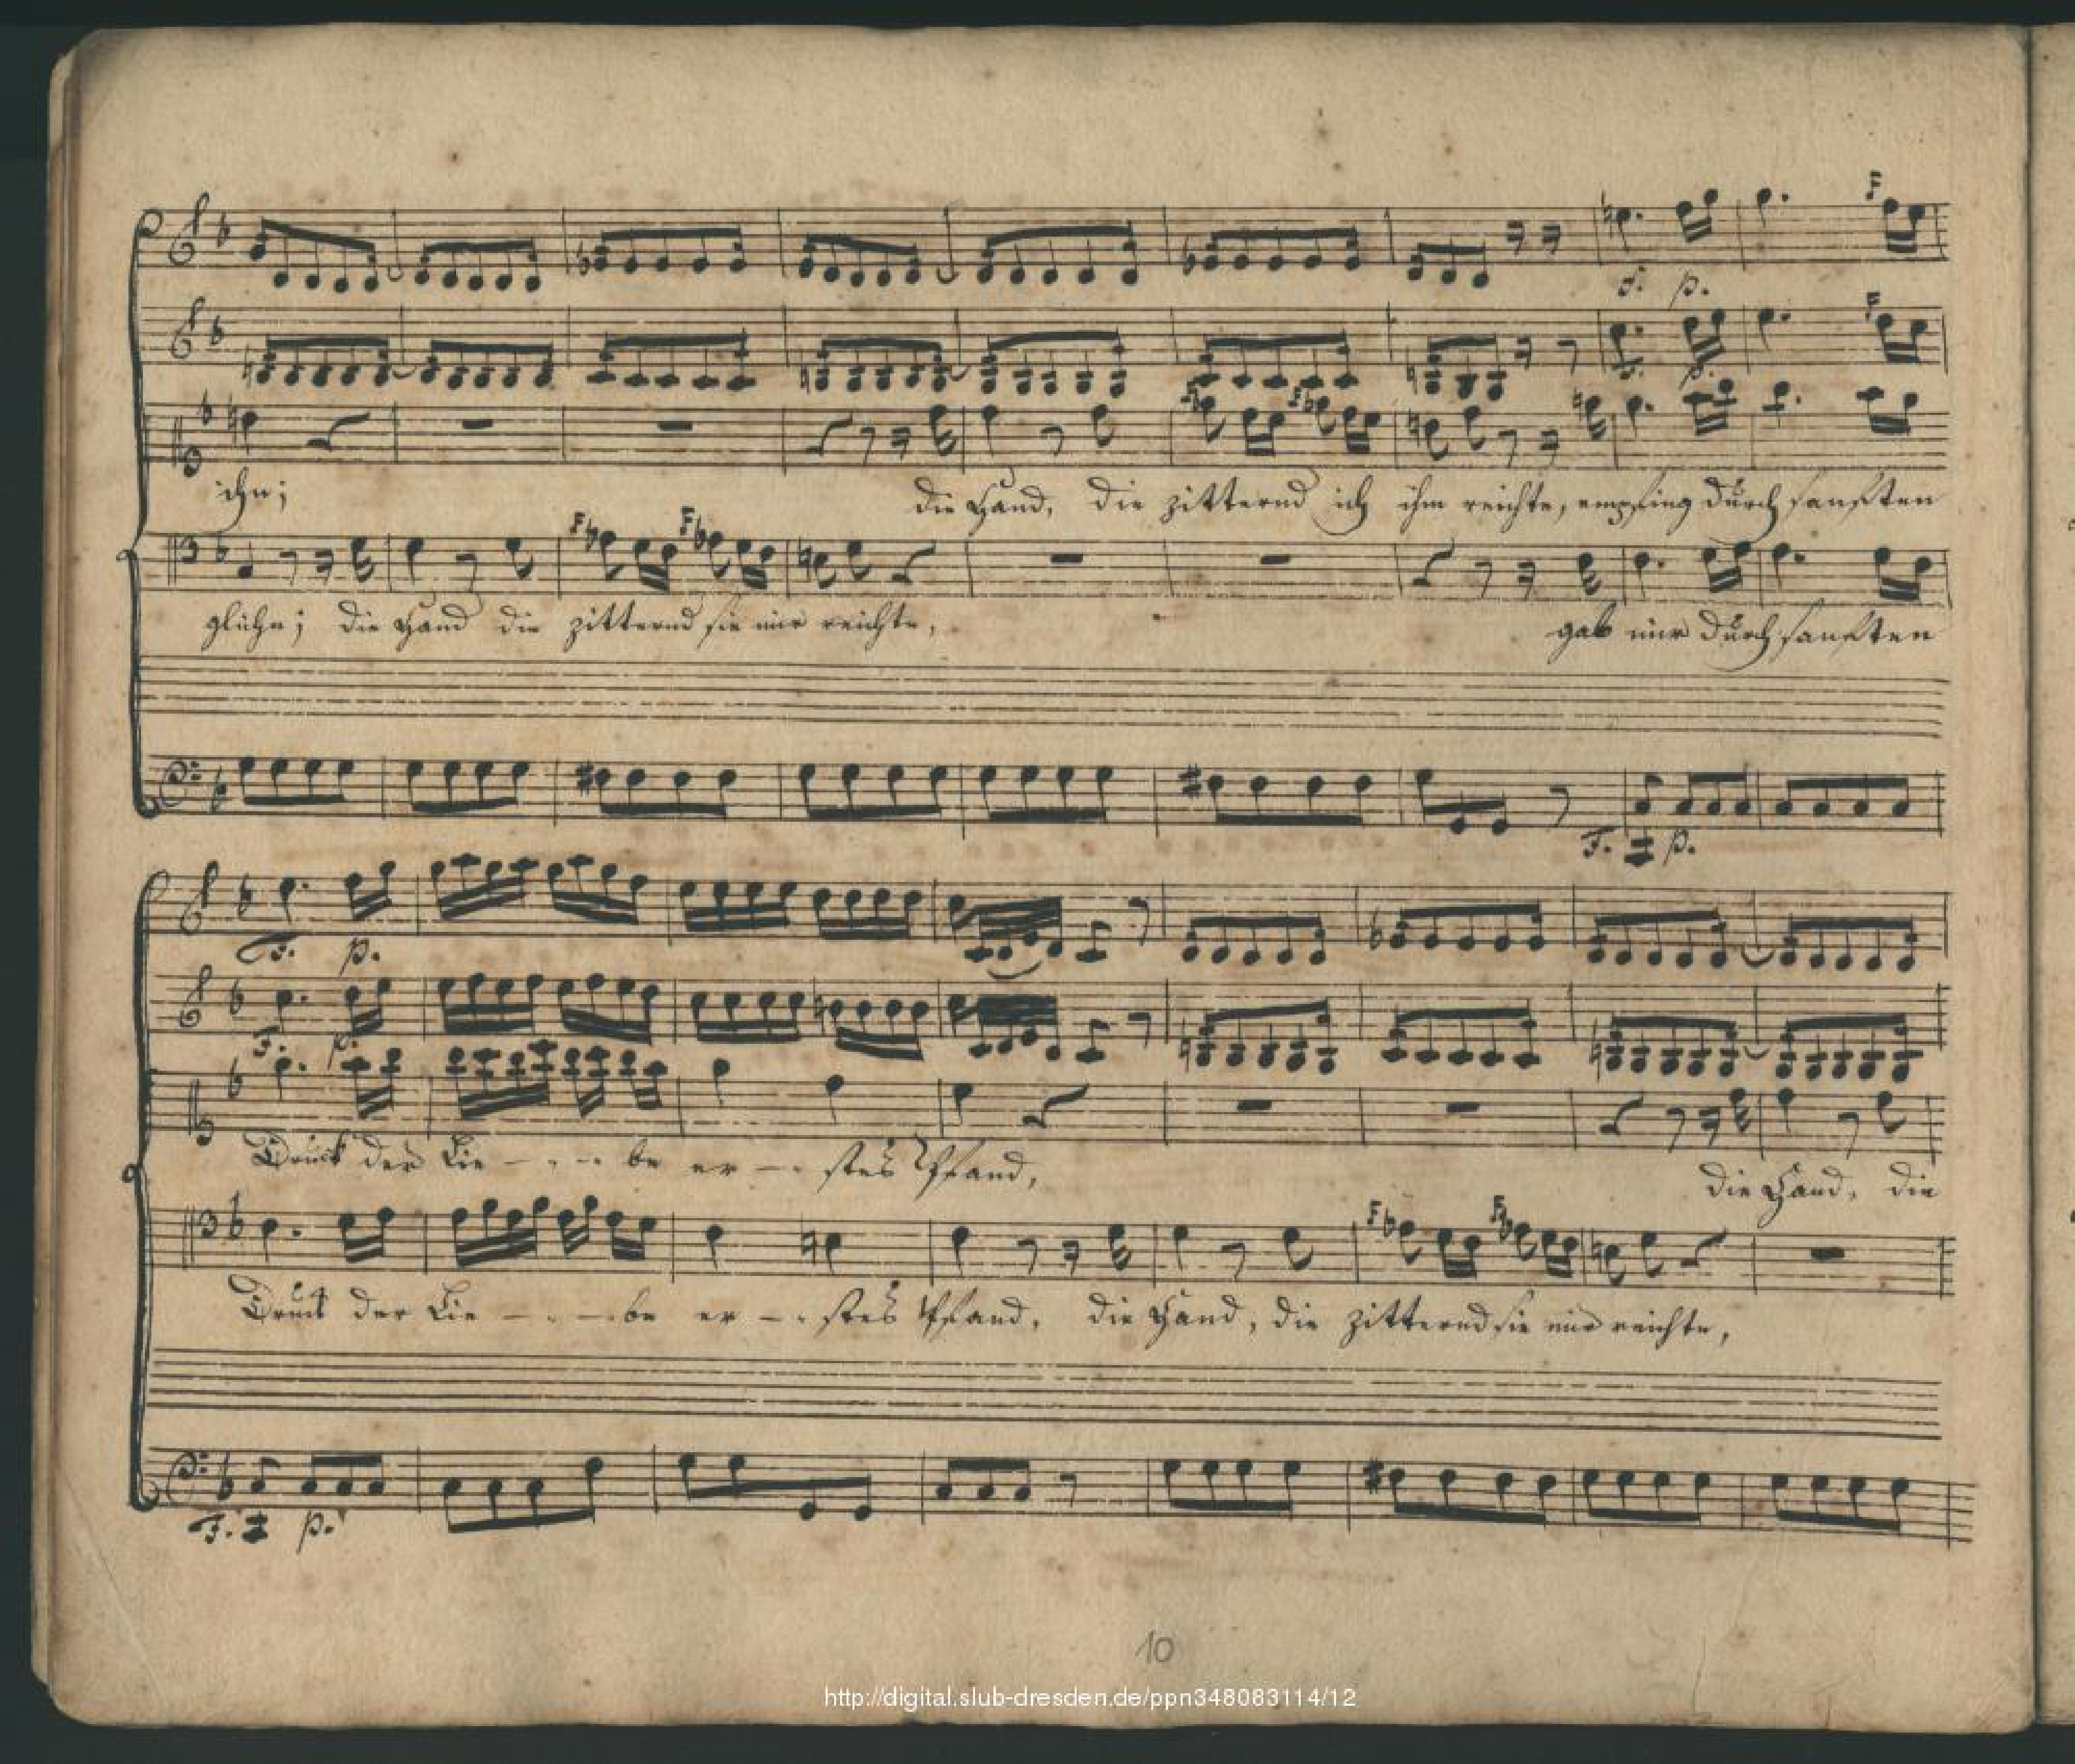 F
F. p.
F
ihn;
die Hand, die zitternd ich ihm reichte, empfing durch sanften
F F
glühn; die Hand die zitternd sie mir reichte,
gab mir durch sanften
F. p.
F. p.
F. p.
Druck der Lie - - - be er - - stes Pfand,
die Hand, die
F F
Druck der Lie - - - be er - - stes Pfand, die Hand, die zitternd sie mir reichte,
F. p.
10
http://digital.slub-dresden.de/ppn348083114/12